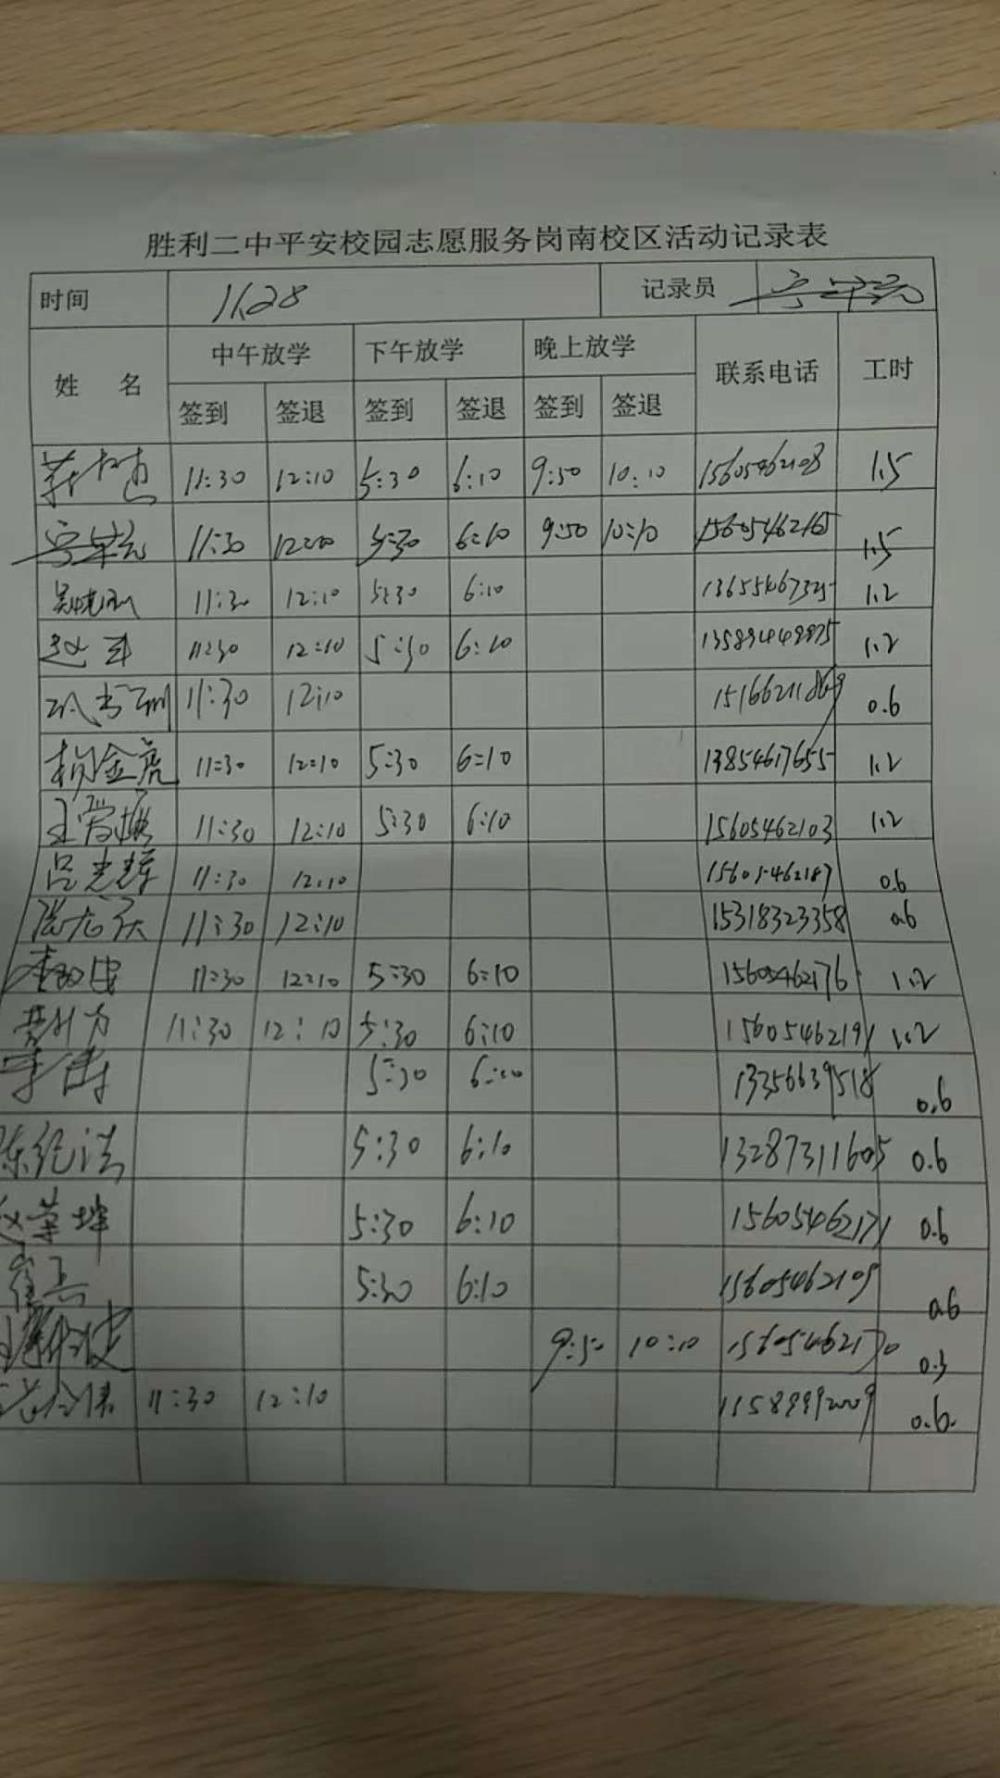 胜利二中平安校园志愿服务岗南校区活动记录表
时间 11.28 记录员
姓 名 中午放学 下午放学 晚上放学 联系电话 工时
签到 签退 签到 签退 签到 签退
11:30 12:10 5:30 6:10 9:50 10:10 15605462108 1.5
11:30 12:10 5:30 6:10 9:50 10:10 15605462165 1.5
11:30 12:10 5:30 6:10 1.2
赵军 11:30 12:10 5:30 6:10 13589449875 1.2
11:30 12:10 0.6
杨金虎 11:30 12:10 5:30 6:10 13854617655 1.2
11:30 12:10 5:30 6:10 15605462103 1.2
吕志辉 11:30 12:10 15605462187 0.6
11:30 12:10 15318323358 0.6
11:30 12:10 5:30 6:10 15605462176 1.2
11:30 12:10 5:30 6:10 15605462191 1.2
李涛 5:30 6:10 13356639518 0.6
陈纪洪 5:30 6:10 13287311605 0.6
赵荣坤 5:30 6:10 15605462171 0.6
5:30 6:10 15605462109 0.6
9:50 10:10 15605462170 0.3
11:30 12:10 0.6